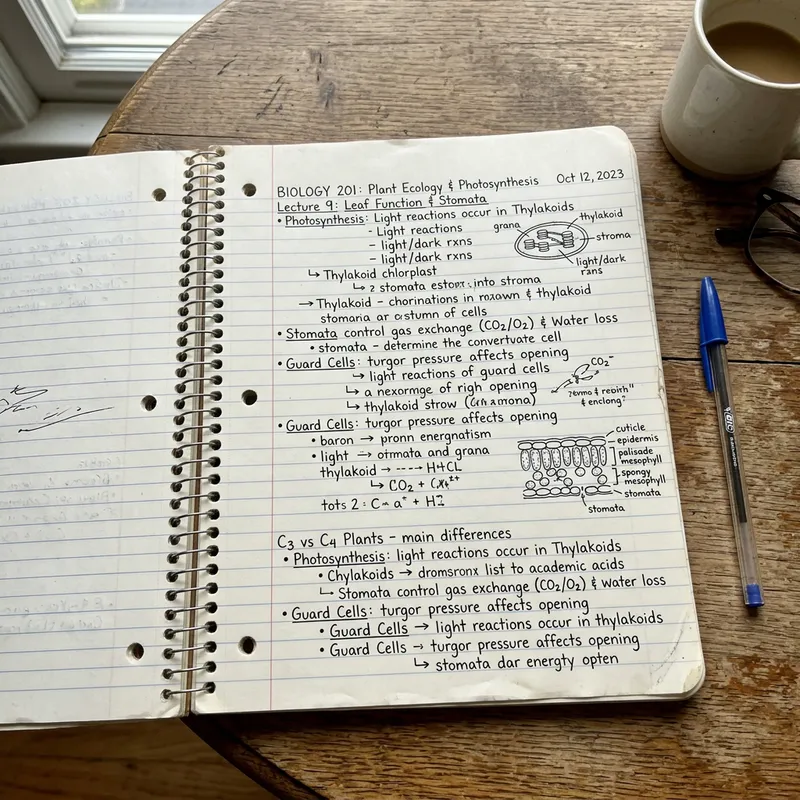 BIOLOGY 201: Plant Ecology & Photosynthesis Oct 12, 2023
Lecture 9: Leaf Function & Stomata
• Photosynthesis: Light reactions occur in Thylakoids
- Light reactions
- light/dark rxns
- light/dark rxns
grana
thylakoid
stroma
light/dark
rans
↳ Thylakoid chlorplast
↳ 2 stomata into stroma
→ Thylakoid - chorinations in & thylakoid
stomaria ar of cells
• Stomata control gas exchange (CO₂/O₂) & Water loss
• stomata - determine the convertuate cell
• Guard Cells: turgor pressure affects opening
↳ light reactions of guard cells
↳ a nexormge of righ opening
↳ thylakoid strow
CO₂⁻
& enclong?
• Guard Cells: turgor pressure affects opening
• baron → pronn energnatism
• light → otmata and grana
thylakoid → ---→ H+CL
↳ CO₂ +
tots 2:
cuticle
epidermis
palisade
mesophyll
spongy
mesophyll
stomata
stomata
C₃ vs C₄ Plants - main differences
• Photosynthesis: light reactions occur in Thylakoids
• Chylakoids → dromsronx list to academic acids
↳ Stomata control gas exchange (CO₂/O₂) & water loss
• Guard Cells: turgor pressure affects opening
• Guard Cells → light reactions occur in thylakoids
• Guard Cells → turgor pressure affects opening
↳ stomata dar energty opten
BIC